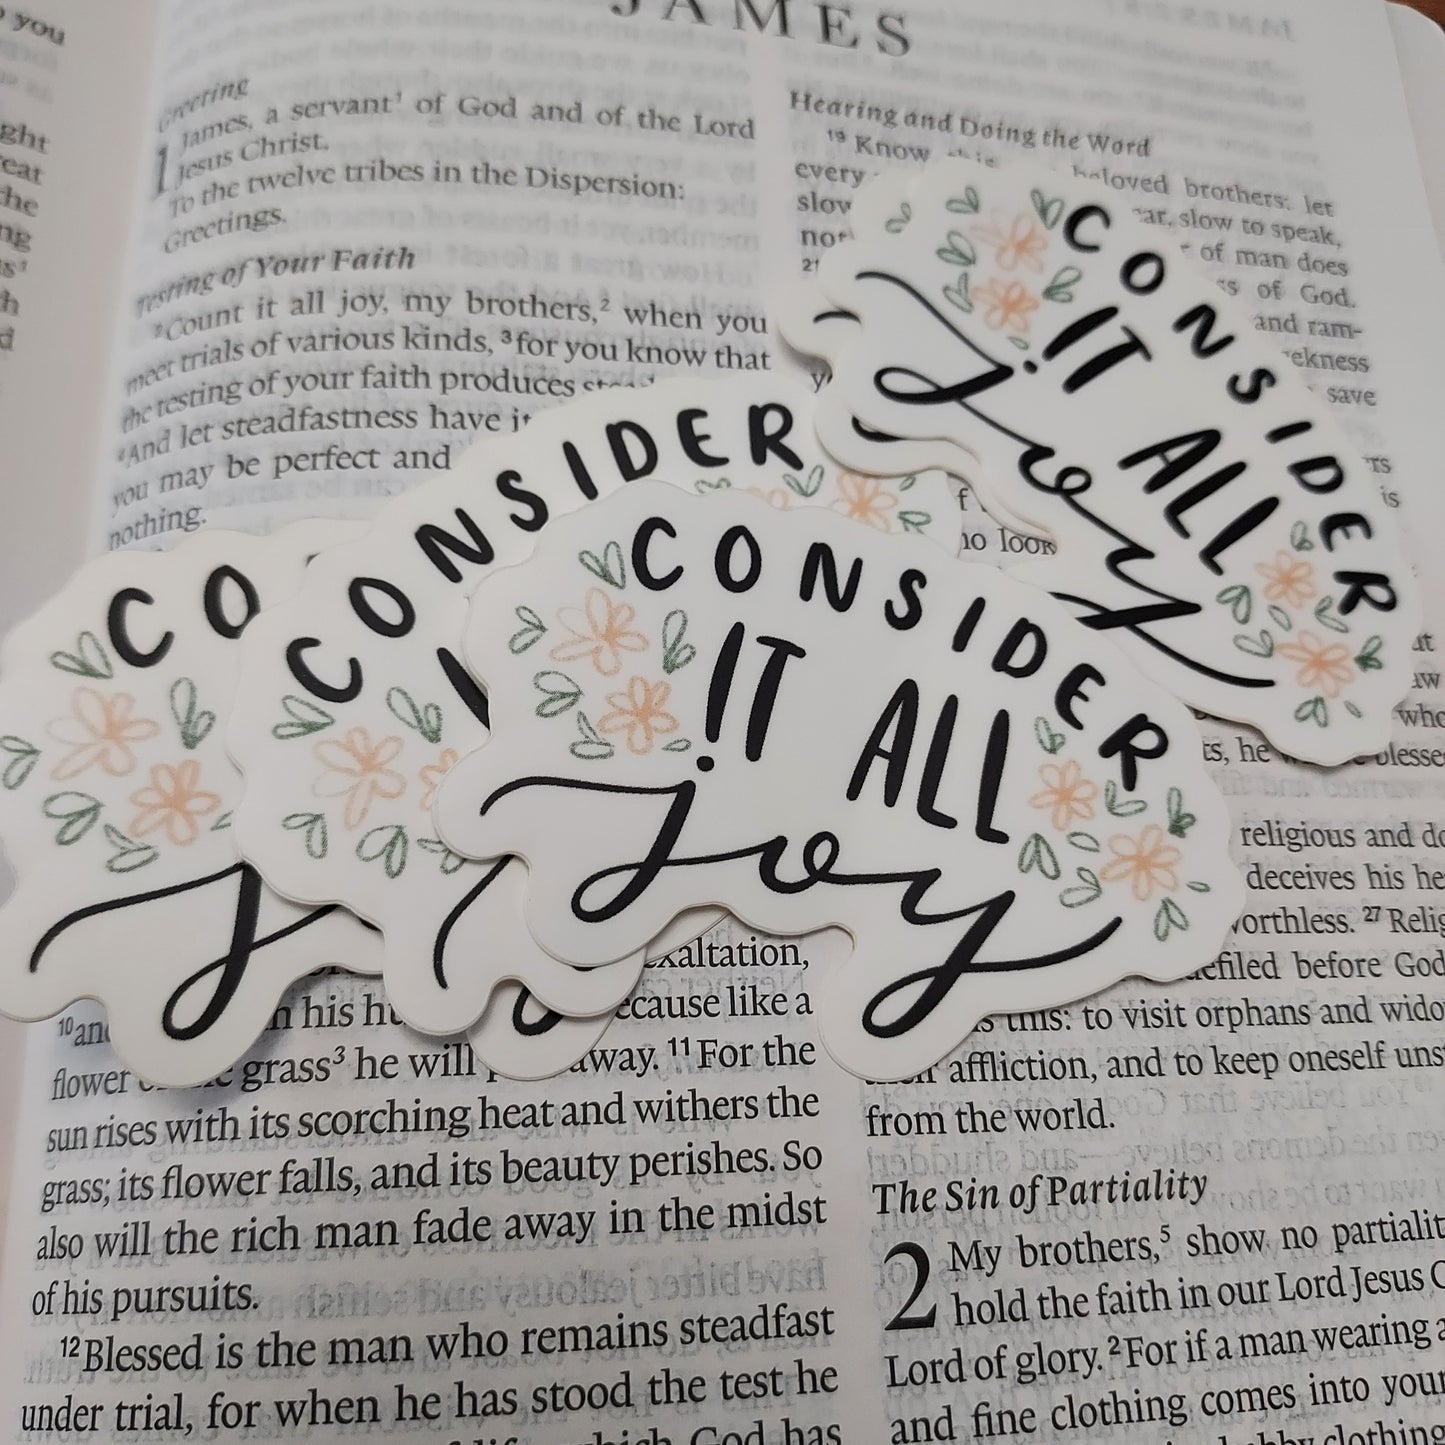 you
ght
eat
the
ng
h
d
JAMES
Greeting
1 James, a servant¹ of God and of the Lord
Jesus Christ.
To the twelve tribes in the Dispersion:
Greetings.
Testing of Your Faith
²Count it all joy, my brothers,² when you
meet trials of various kinds, ³for you know that
the testing of your faith produces
⁴And let steadfastness have
you may be perfect and
nothing.
10
flower grass³ he will away. ¹¹For the
exaltation,
in his
because like a
sun rises with its scorching heat and withers the
grass; its flower falls, and its beauty perishes. So
also will the rich man fade away in the midst
of his pursuits.
¹²Blessed is the man who remains steadfast
under trial, for when he has stood the test he
which God has
Hearing and Doing the Word
¹⁹Know beloved brothers: let
every slow to speak,
of man does
of God.
21 and ram-
save
is
no look
who
he blesse
religious and do
deceives his he
worthless. ²⁷Relig
defiled before God
is this: to visit orphans and wido
affliction, and to keep oneself uns
from the world.
The Sin of Partiality
2 My brothers,⁵ show no partialit
hold the faith in our Lord Jesus C
Lord of glory. ²For if a man wearing a
and fine clothing comes into your
clothing
CONSIDER
IT ALL
joy
CONSIDER
IT ALL
joy
CONSIDER
CO